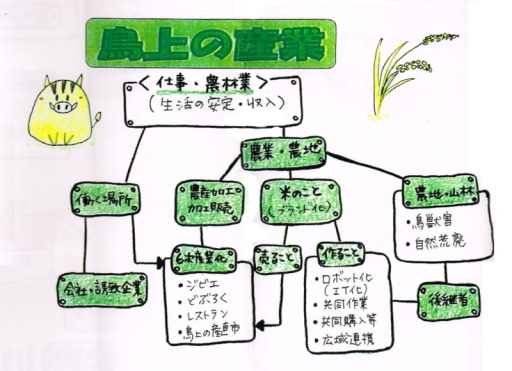 鳥上の産業
<仕事・農林業>
(生活の安定・収入)
農業・農地
働く場所
農産加工
加工販売
米のこと
(ブランド化)
農地・山林
・鳥獣害
・自然荒廃
会社・誘致企業
6次産業化
・ジビエ
・どぶろく
・レストラン
・鳥上の産直市
売ること
作ること
・ロボット化
(IT化)
・共同作業
・共同購入等
・広域連携
後継者